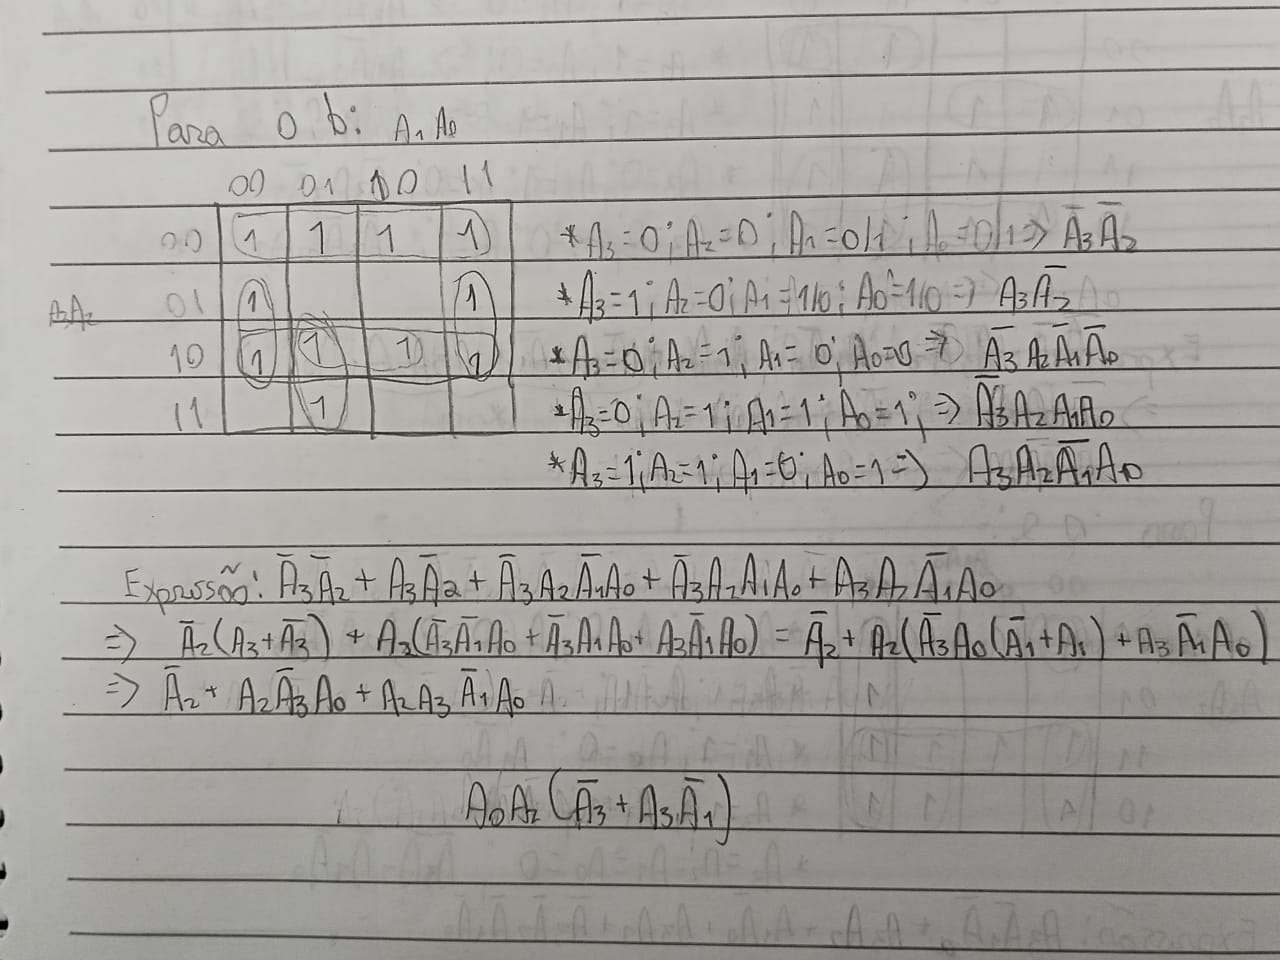 Para o b: A₁ A₀
00 01 10 11
00 1 1 1 1 *A₃=0; A₂=0; A₁=0/1; A₀=0/1 ⇒ A̅₃A̅₂
A₃A₂ 01 1 1 *A₃=1; A₂=0; A₁=1/0; A₀=1/0 ⇒ A₃A̅₂
10 1 1 1 1 *A₃=0; A₂=1; A₁=0; A₀=0 ⇒ A̅₃A₂A̅₁A̅₀
11 1 *A₃=0; A₂=1; A₁=1; A₀=1; ⇒ A̅₃A₂A₁A₀
*A₃=1; A₂=1; A₁=0; A₀=1 ⇒ A₃A₂A̅₁A₀
Expressão: A̅₃A̅₂ + A₃A̅₂ + A̅₃A₂A̅₁A₀ + A̅₃A₂A₁A₀ + A₃A₂A̅₁A₀
⇒ A̅₂(A₃+A̅₃) + A₂(A̅₃A̅₁A₀ + A̅₃A₁A₀ + A₃A̅₁A₀) = A̅₂ + A₂(A̅₃A₀(A̅₁+A₁) + A₃A̅₁A₀)
⇒ A̅₂ + A₂A̅₃A₀ + A₂A₃A̅₁A₀
A₀A₂(A̅₃ + A₃A̅₁)